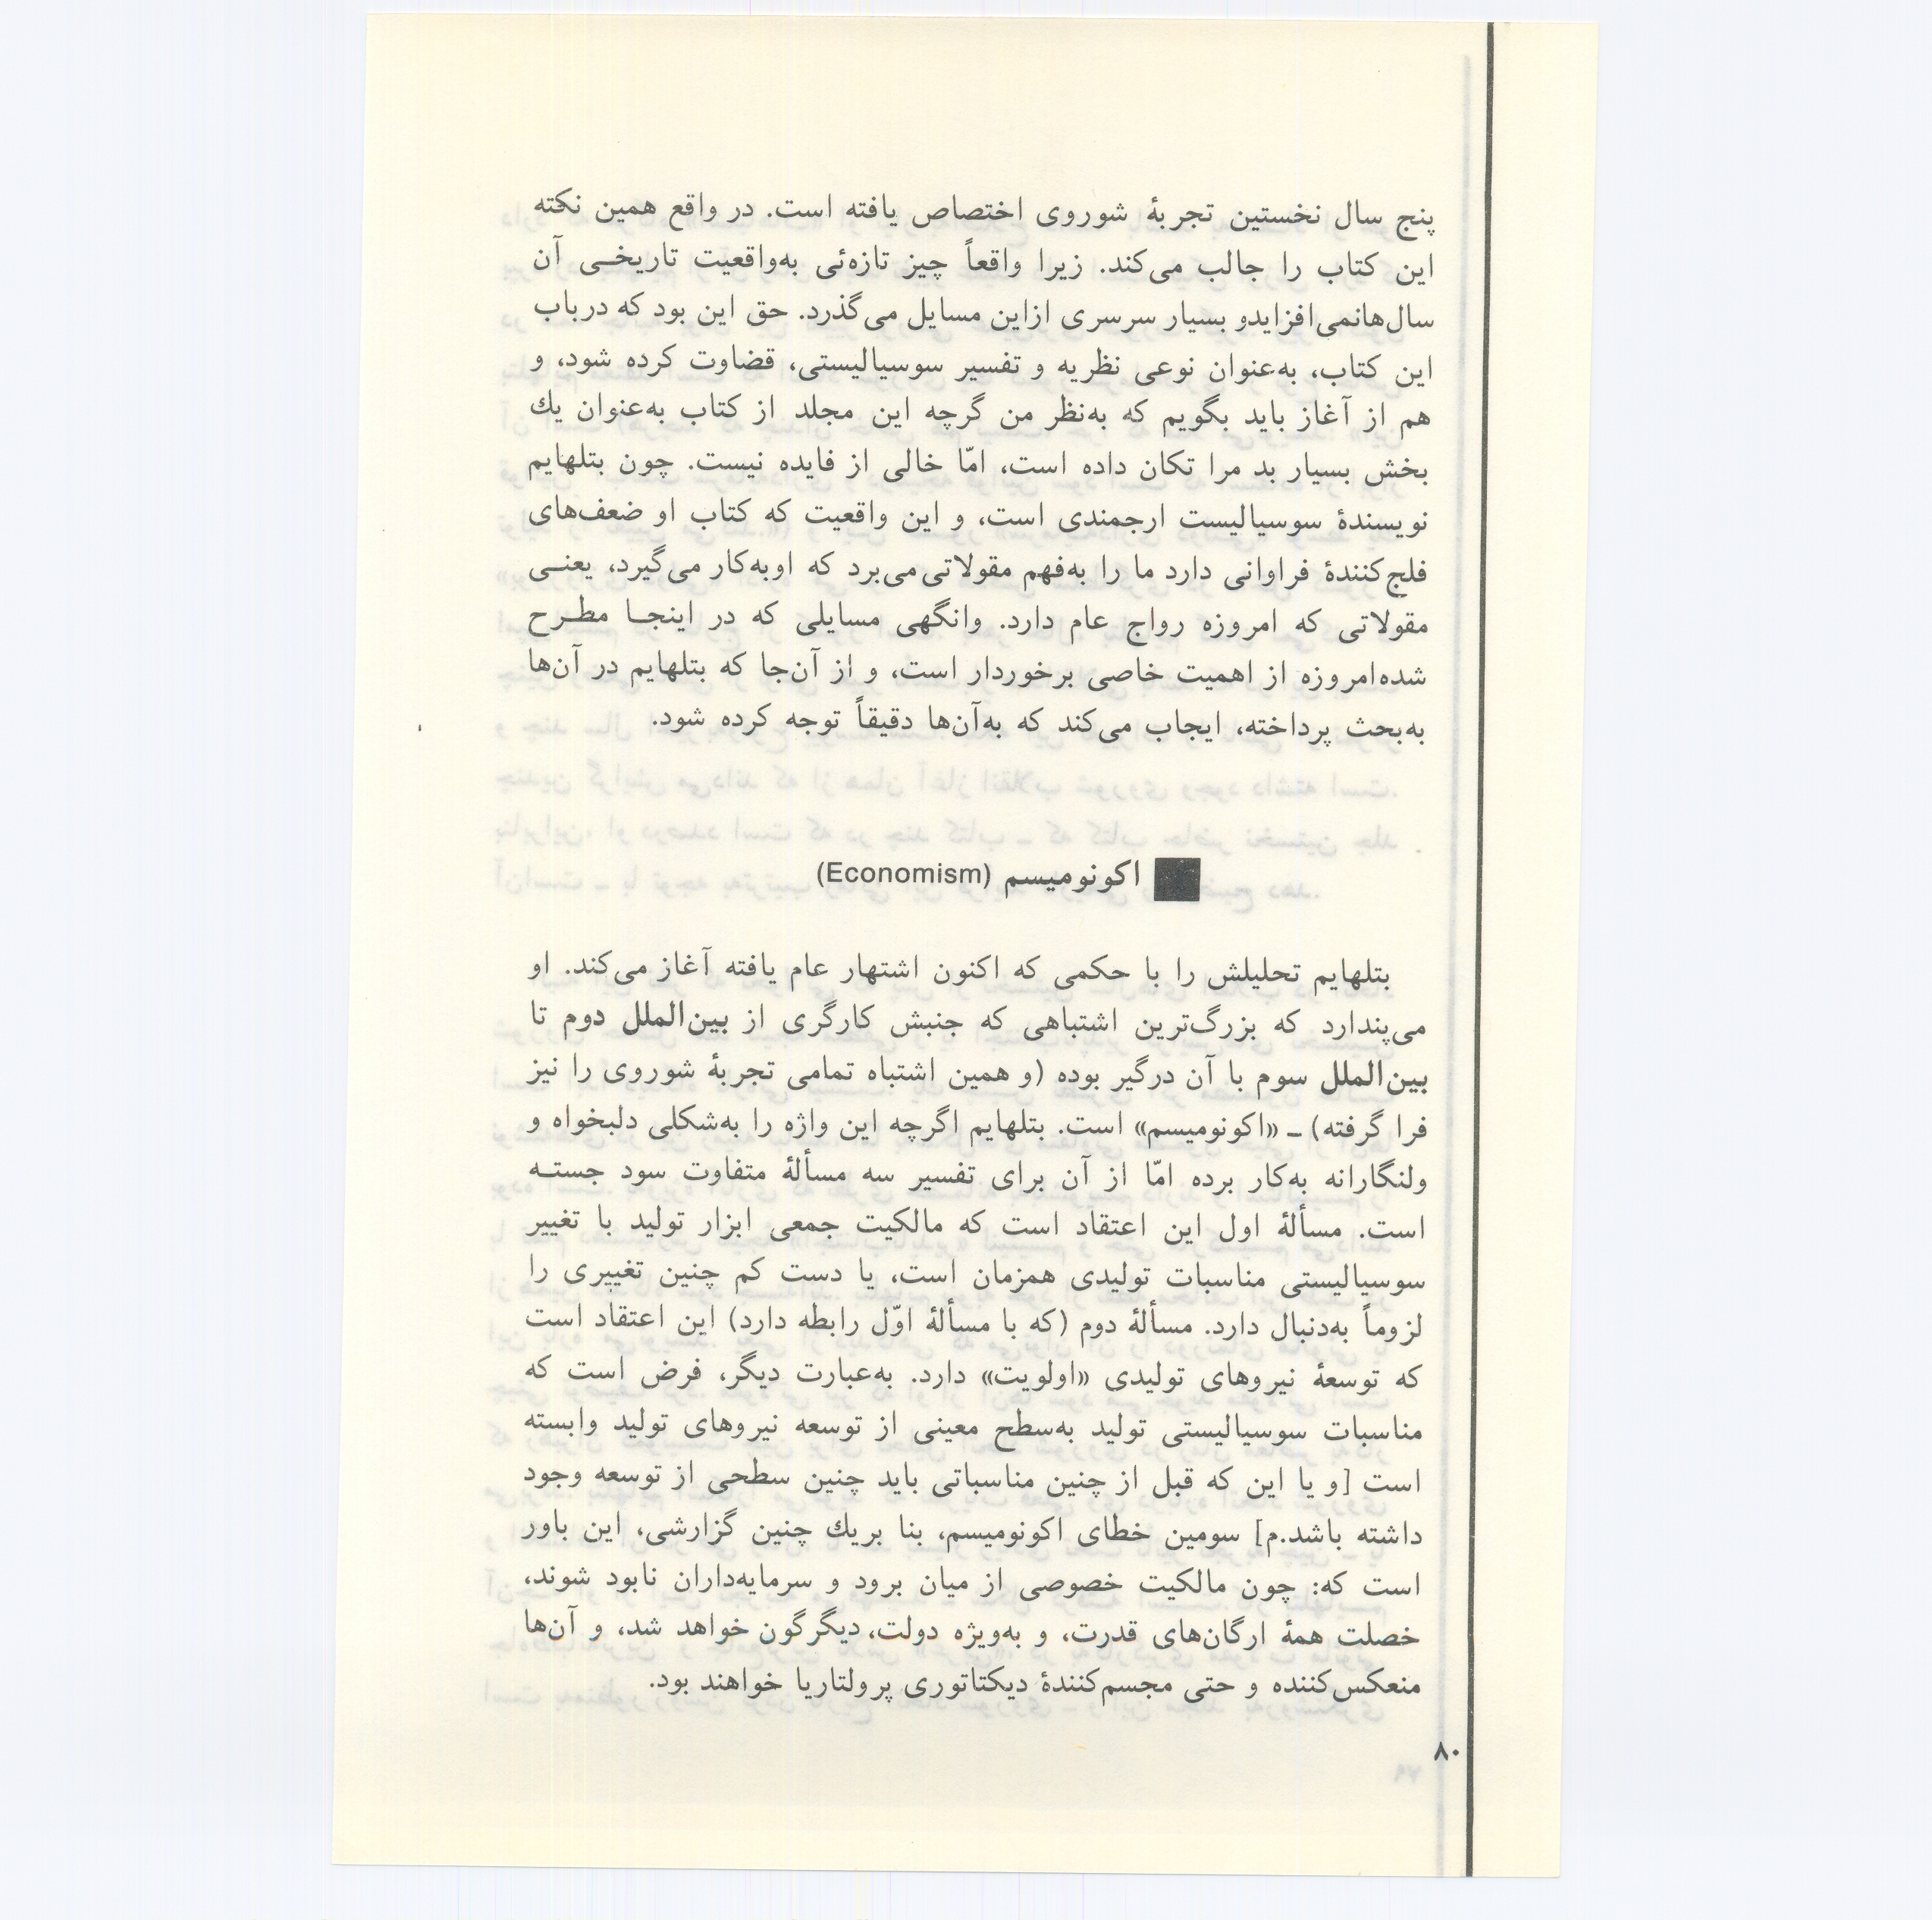 پنج سال نخستین تجربهٔ شوروی اختصاص یافته است. در واقع همین نکته
این کتاب را جالب می‌کند. زیرا واقعاً چیز تازه‌ئی به‌واقعیت تاریخـی آن
سال‌هانمی‌افزایدو بسیار سرسری ازاین مسایل می‌گذرد. حق این بود که درباب
این کتاب، به‌عنوان نوعی نظریه و تفسیر سوسیالیستی، قضاوت کرده شود، و
هم از آغاز باید بگویم که به‌نظر من گرچه این مجلد از کتاب به‌عنوان یك
بخش بسیار بد مرا تکان داده است، امّا خالی از فایده نیست. چون بتلهایم
نویسندهٔ سوسیالیست ارجمندی است، و این واقعیت که کتاب او ضعف‌های
فلج‌کنندهٔ فراوانی دارد ما را به‌فهم مقولاتی می‌برد که اوبه‌کار می‌گیرد، یعنـی
مقولاتی که امروزه رواج عام دارد. وانگهی مسایلی که در اینجـا مطـرح
شده‌امروزه از اهمیت خاصی برخوردار است، و از آن‌جا که بتلهایم در آن‌ها
به‌بحث پرداخته، ایجاب می‌کند که به‌آن‌ها دقیقاً توجه کرده شود.
اکونومیسم (Economism)
بتلهایم تحلیلش را با حکمی که اکنون اشتهار عام یافته آغاز می‌کند. او
می‌پندارد که بزرگ‌ترین اشتباهی که جنبش کارگری از بین‌الملل دوم تا
بین‌الملل سوم با آن درگیر بوده (و همین اشتباه تمامی تجربهٔ شوروی را نیز
فرا گرفته) ـ «اکونومیسم» است. بتلهایم اگرچه این واژه را به‌شکلی دلبخواه و
ولنگارانه به‌کار برده امّا از آن برای تفسیر سه مسألهٔ متفاوت سود جستـه
است. مسألهٔ اول این اعتقاد است که مالکیت جمعی ابزار تولید با تغییر
سوسیالیستی مناسبات تولیدی همزمان است، یا دست کم چنین تغییری را
لزوماً به‌دنبال دارد. مسألهٔ دوم (که با مسألهٔ اوّل رابطه دارد) این اعتقاد است
که توسعهٔ نیروهای تولیدی «اولویت» دارد. به‌عبارت دیگر، فرض است که
مناسبات سوسیالیستی تولید به‌سطح معینی از توسعه نیروهای تولید وابسته
است [و یا این که قبل از چنین مناسباتی باید چنین سطحی از توسعه وجود
داشته باشد.م] سومین خطای اکونومیسم، بنا بریك چنین گزارشی، این باور
است که: چون مالکیت خصوصی از میان برود و سرمایه‌داران نابود شوند،
خصلت همهٔ ارگان‌های قدرت، و به‌ویژه دولت، دیگرگون خواهد شد، و آن‌ها
منعکس‌کننده و حتی مجسم‌کنندهٔ دیکتاتوری پرولتاریا خواهند بود.
۸۰